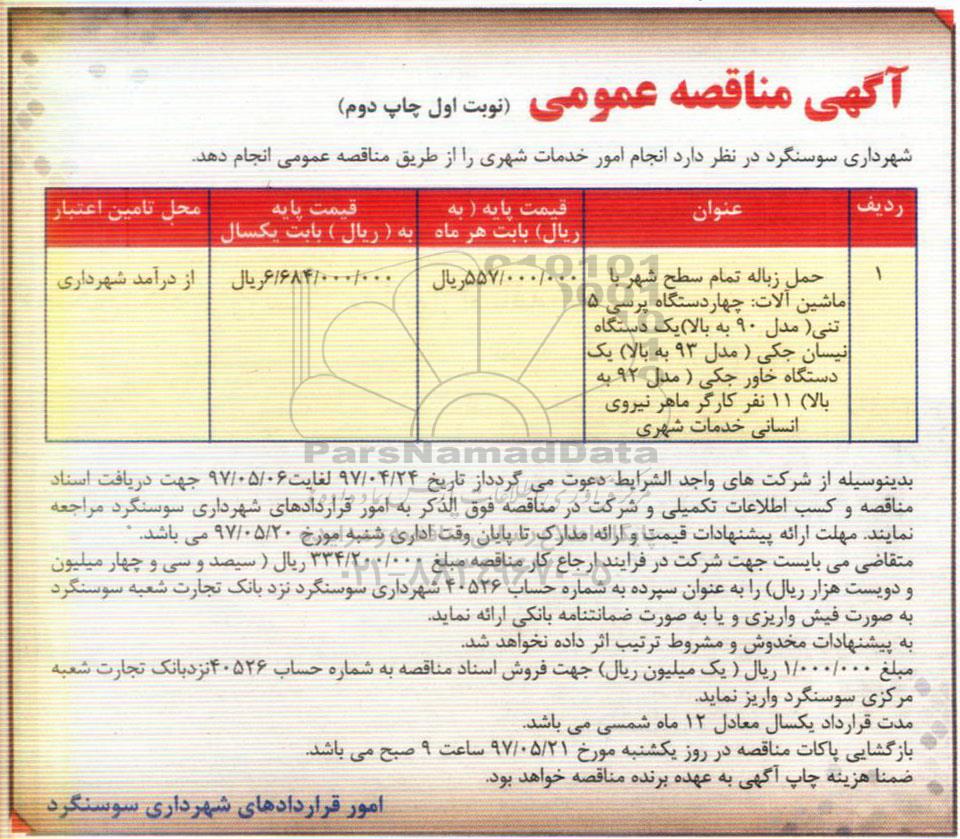 آگهی مناقصه عمومی (نوبت اول چاپ دوم)
شهرداری سوسنگرد در نظر دارد انجام امور خدمات شهری را از طریق مناقصه عمومی انجام دهد.
ردیف
عنوان
قیمت پایه ( به
ریال) بابت هر ماه
قیمت پایه
به ( ریال ) بابت یکسال
محل تامین اعتبار
۱
حمل زباله تمام سطح شهر با
ماشین آلات: چهاردستگاه پرسی ۵
تنی( مدل ۹۰ به بالا)یک دستگاه
نیسان جکی ( مدل ۹۳ به بالا) یک
دستگاه خاور جکی ( مدل ۹۲ به
بالا) ۱۱ نفر کارگر ماهر نیروی
انسانی خدمات شهری
۵۵۷/۰۰۰/۰۰۰ریال
۶/۶۸۴/۰۰۰/۰۰۰ریال
از درآمد شهرداری
ParsNamadData
بدینوسیله از شرکت های واجد الشرایط دعوت می گردداز تاریخ ۹۷/۰۴/۲۴ لغایت۹۷/۰۵/۰۶ جهت دریافت اسناد
مناقصه و کسب اطلاعات تکمیلی و شرکت در مناقصه فوق الذکر به امور قراردادهای شهرداری سوسنگرد مراجعه
نمایند. مهلت ارائه پیشنهادات قیمت و ارائه مدارک تا پایان وقت اداری شنبه مورخ ۹۷/۰۵/۲۰ می باشد.
متقاضی می بایست جهت شرکت در فرایند ارجاع کار مناقصه مبلغ ۳۳۴/۲۰۰/۰۰۰ ریال ( سیصد و سی و چهار میلیون
و دویست هزار ریال) را به عنوان سپرده به شماره حساب ۴۰۵۲۶ شهرداری سوسنگرد نزد بانک تجارت شعبه سوسنگرد
به صورت فیش واریزی و یا به صورت ضمانتنامه بانکی ارائه نماید.
به پیشنهادات مخدوش و مشروط ترتیب اثر داده نخواهد شد.
مبلغ ۱/۰۰۰/۰۰۰ ریال ( یک میلیون ریال) جهت فروش اسناد مناقصه به شماره حساب ۴۰۵۲۶نزدبانک تجارت شعبه
مرکزی سوسنگرد واریز نماید.
مدت قرارداد یکسال معادل ۱۲ ماه شمسی می باشد.
بازگشایی پاکات مناقصه در روز یکشنبه مورخ ۹۷/۰۵/۲۱ ساعت ۹ صبح می باشد.
ضمنا هزینه چاپ آگهی به عهده برنده مناقصه خواهد بود.
امور قراردادهای شهرداری سوسنگرد